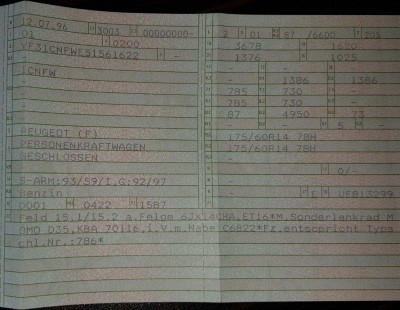 12.07.96 3003 00000000- 2 01 S7 /6600 T 205
01 0200 3678 1620
VF31CNFWE51561622 - 1376 1025
- -
1CNFW - 1386 1386
- 785 730 -
- 785 730 -
- 87 4950 73
- - 5 -
PEUGEOT (F) 175/60R14 78H
PERSONENKRAFTWAGEN 175/60R14 78H
GESCHLOSSEN -
- - 0/-
S-ARM:93/59/I,G:92/97 -
Benzin - E
0001 0422 1587
Feld 15.1/15.2 a.Felge 6Jx14CHA,ET16*M.Sonderlenkrad M
OMO D35,KBA 70116,i.V.m.Nabe C6822*Fz.entspricht Typs
chl.Nr.:786*